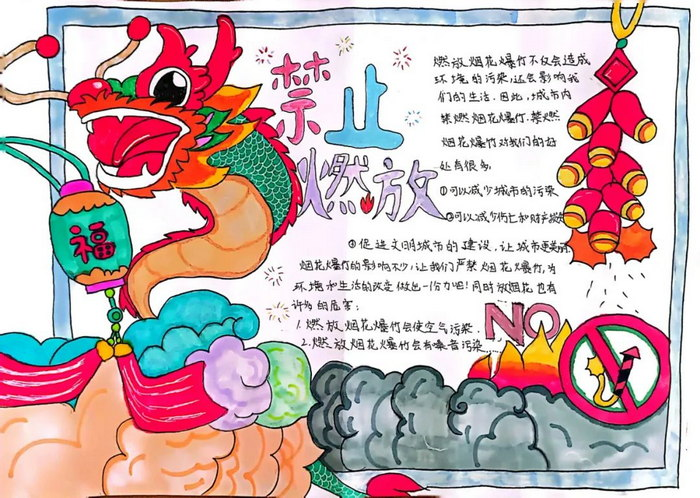 禁止
燃放
福
燃放烟花爆竹不仅会造成
环境的污染,还会影响我
们的生活。因此,城市内
禁燃烟花爆竹.禁燃
烟花爆竹对我们的好
处有很多,
①可以减少城市的污染
②可以减少伤亡和财产损失
③促进文明城市的建设,让城市更美丽.
烟花爆竹的影响不少,让我们严禁烟花爆竹,为
环境和生活的改变做出一份力吧!同时放烟花也有
许多的危害:
1.燃放烟花爆竹会使空气污染.
2.燃放烟花爆竹会有噪音污染
NO